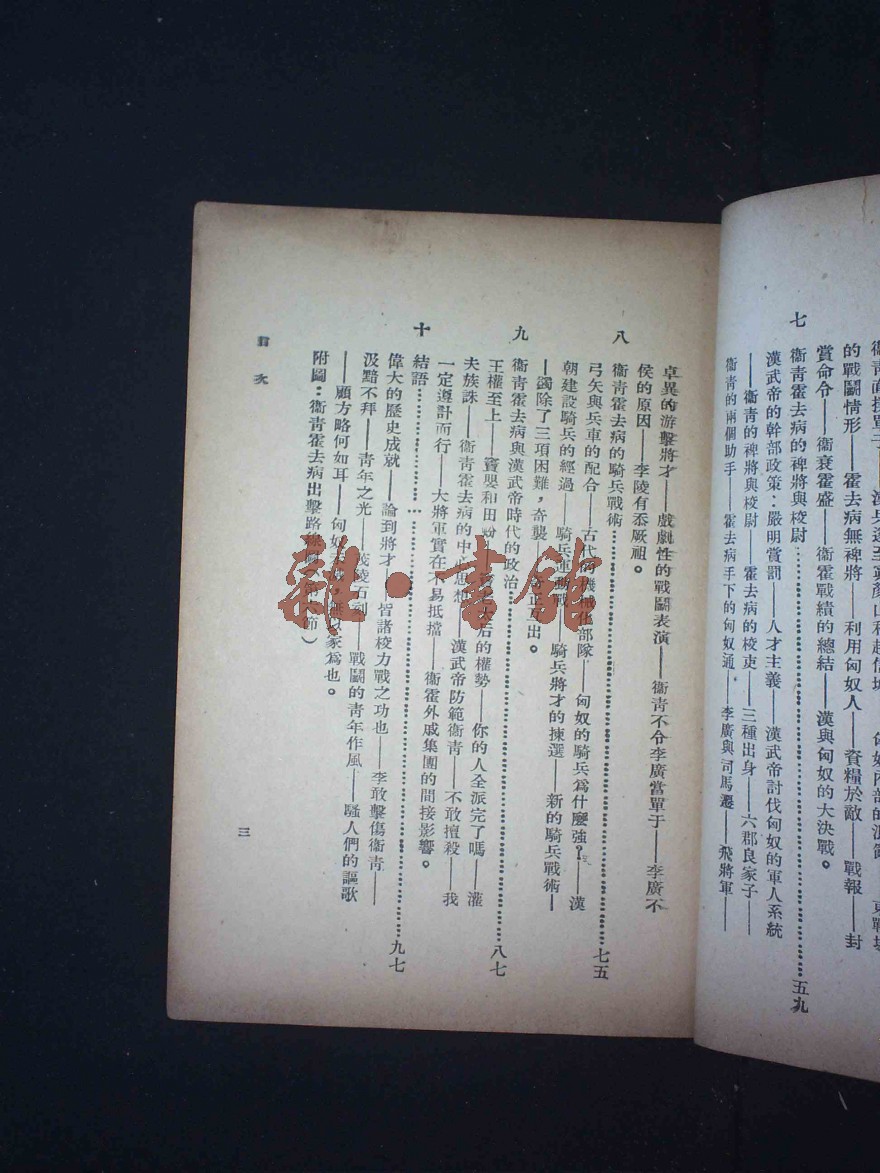 的戰鬭情形——霍去病無裨將——利用匈奴人——資糧於敵——戰報——封
賞命令——衞衰霍盛——衞霍戰績的總結——漢與匈奴的大決戰。
七 衞靑霍去病的裨將與校尉…………五九
漢武帝的幹部政策：嚴明賞罰——人才主義——漢武帝討伐匈奴的軍人系統
——衞靑的裨將與校尉——霍去病的校吏——三種出身——六郡良家子——
衞靑的兩個助手——霍去病手下的匈奴通——李廣與司馬遷——飛將軍——
卓異的游擊將才——戲劇性的戰鬭表演——衞靑不令李廣當單于——李廣不
侯的原因——李陵有忝厥祖。
八 衞靑霍去病的騎兵戰術…………七五
弓矢與兵車的配合——古代的機械化部隊——匈奴的騎兵爲什麽強？——漢
朝建設騎兵的經過——騎兵車戰——騎兵將才的揀選——新的騎兵戰術—
—蠲除了三項困難，奇襲——出。
九 衞靑霍去病與漢武帝時代的政治…………八七
王權至上——竇嬰和田蚡——后的權勢——你的人全派完了嗎——灌
夫族誅——衞靑霍去病的中心思想——漢武帝防範衞靑——不敢擅殺——我
一定遵計而行——大將軍實在不易抵擋——衞霍外戚集團的間接影響。
十 結語…………九七
偉大的歷史成就——論到將才——皆諸校力戰之功也——李敢擊傷衞靑——
汲黯不拜——靑年之光——茂陵石刻——戰鬭的靑年作風——騷人們的謳歌
——顧方略何如耳——匈奴未滅，無以家爲也。
附圖：衞靑霍去病出擊路線圖
目次
三
雜·書館